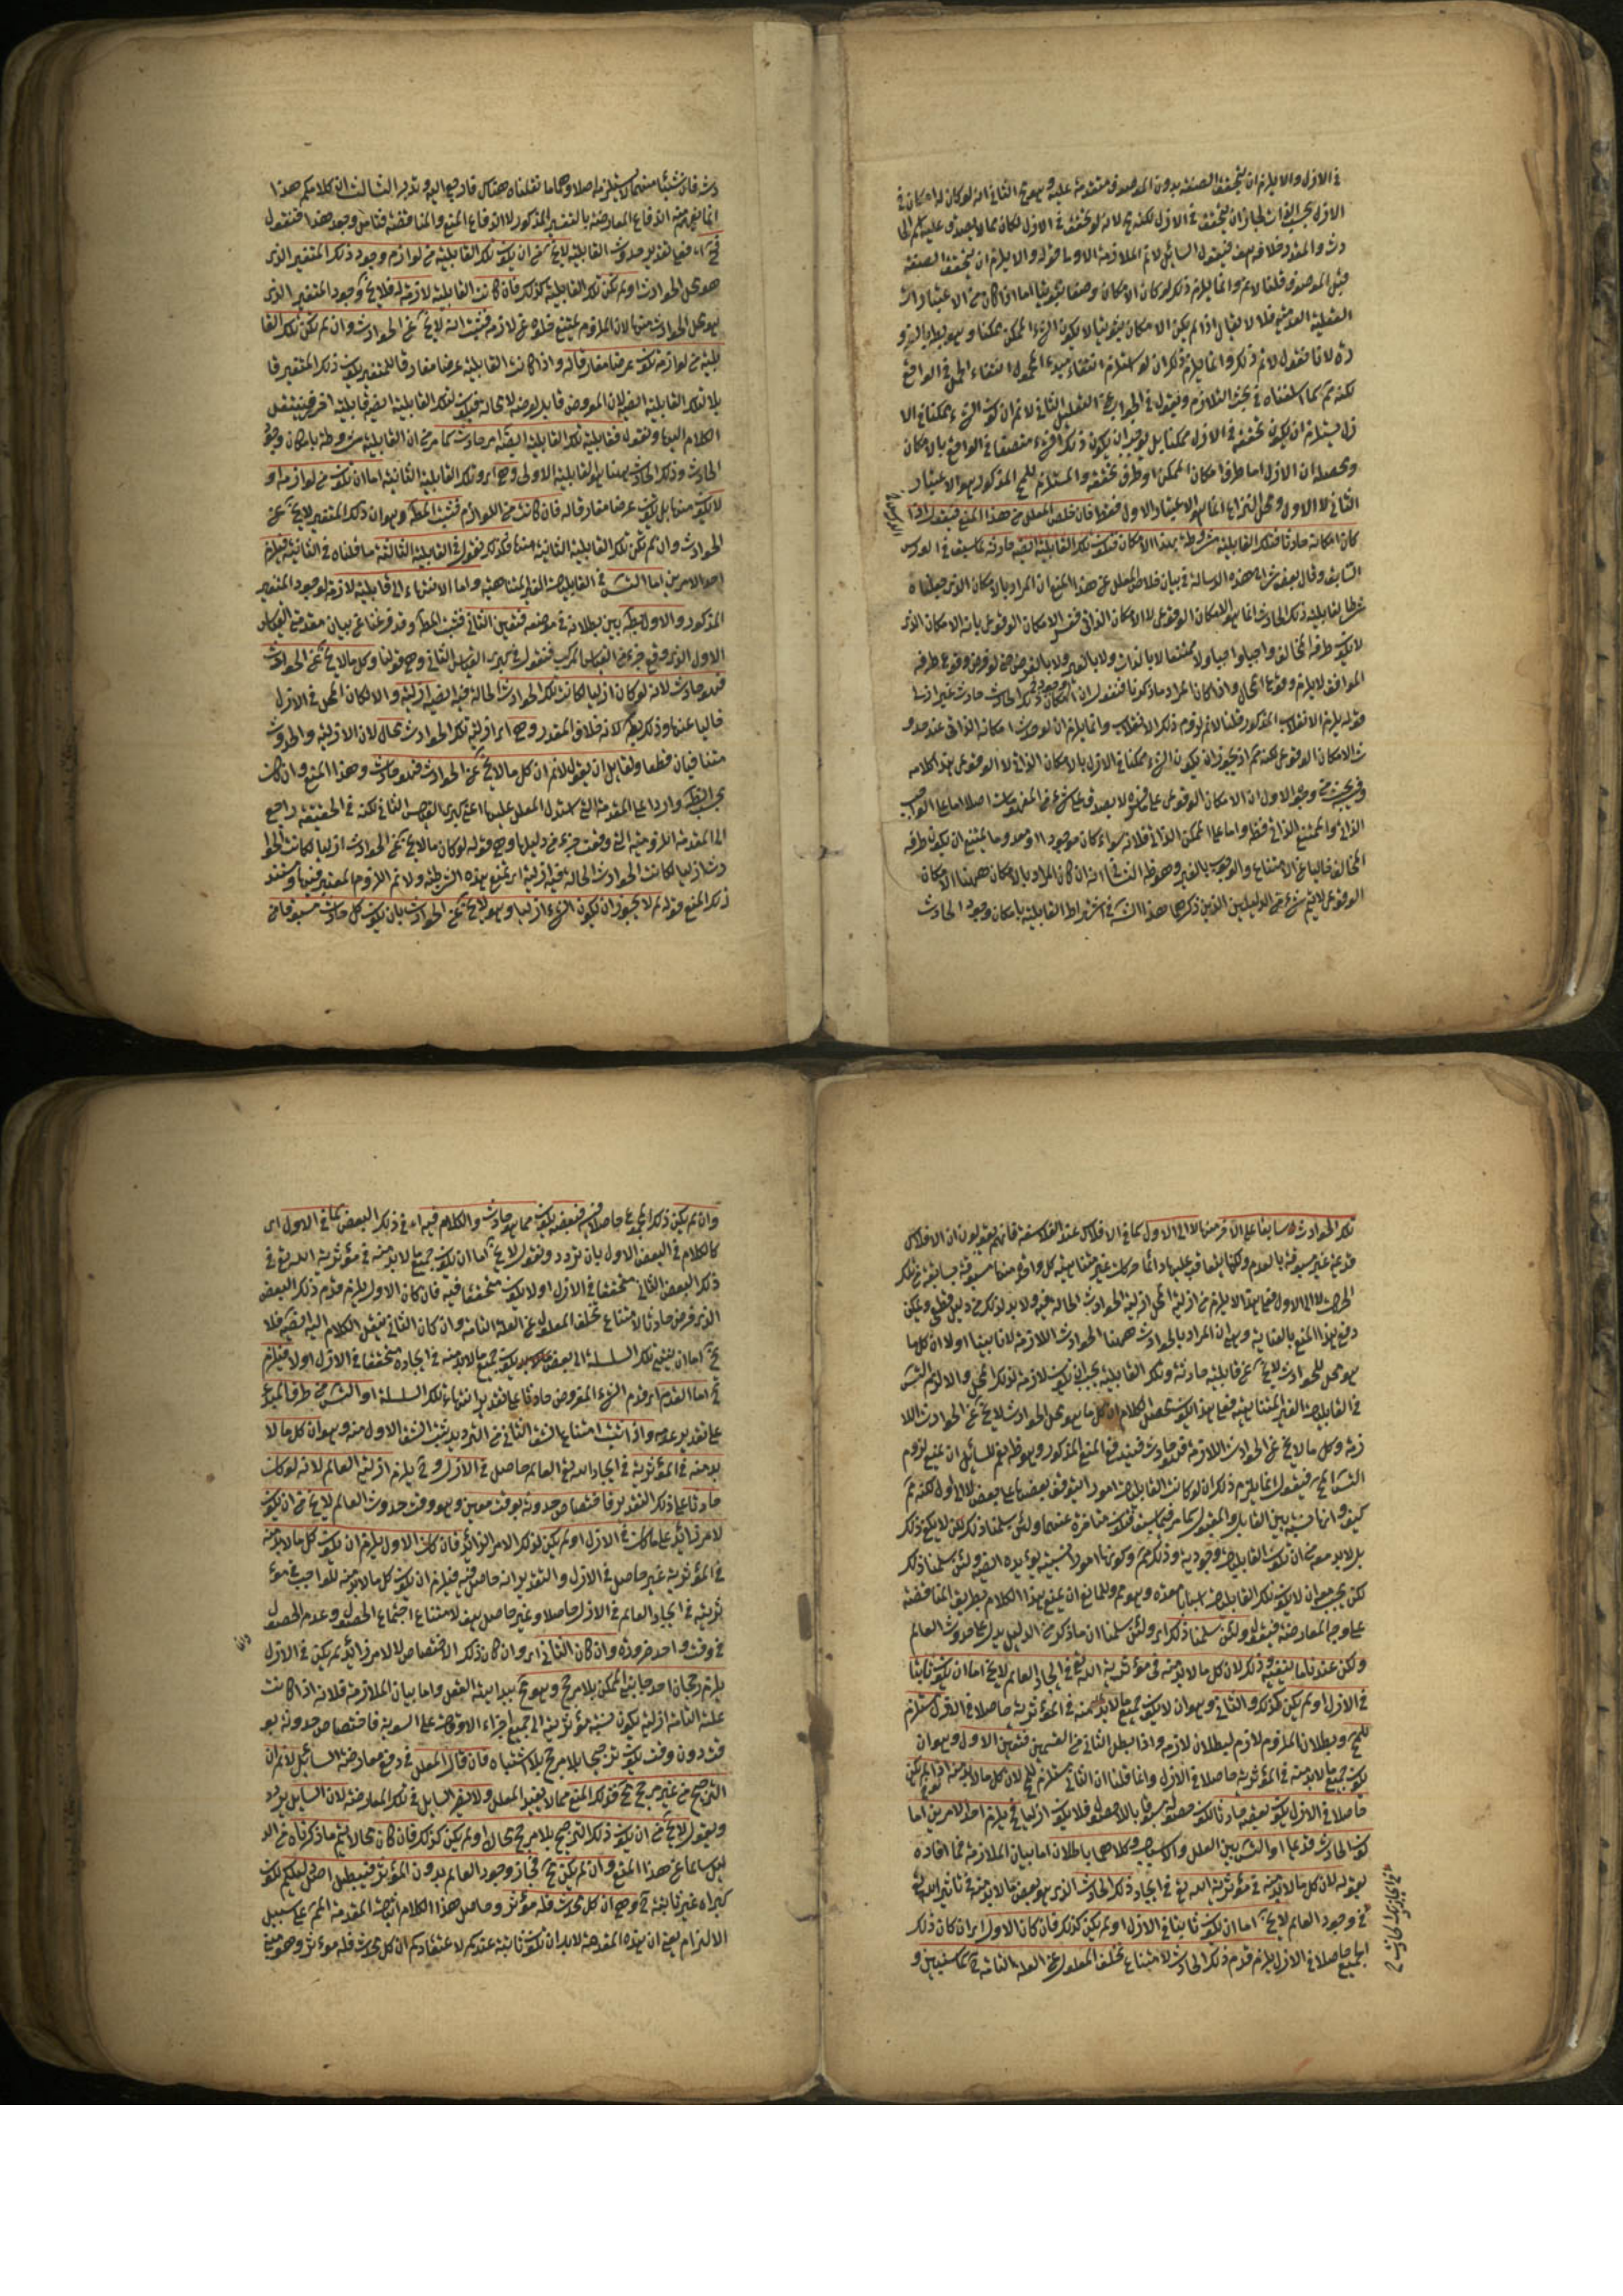 في الازل والا يلزم ان يتحقق الصفة بدون الموصوف متقدمة عليه وهو مح الثاني انه لو كان له امكان في
الازل بحسب الذات لجاز ان يتحقق في الازل لكنه مح لانه لو تحقق في الازل لكان مما لا يصدق عليه الحا
دث والمقدر خلافه هف فيقول السائل لا نم الملازمة الاولى قوله والا يلزم ان يتحقق الصفة
قبل الموصوف قلنا لا نم وانما يلزم ذلك لو كان الامكان وصفا ثبوتيا اما اذا كان من الاعتبارات
العقلية العدمية فلا لا يقال اذا لم يكن الامكان ثبوتيا لا يكون الشيء الممكن ممكنا وهو بط بالضرو
رة لانا نقول لا نم ذلك وانما يلزم ذلك ان لو استلزم انتفاء مبدء المحمول انتفاء الحمل في الواقع
لكنه مم كما اسلفناه في بحث التلازم ونقول في الجواب عن التعليل الثاني لا نم ان كون الشيء ممكنا في الا
زل يستلزم ان يكون تحققه في الازل ممكنا بل يوجب ان يكون ذلك الشيء متصفا في الواقع بالامكان
ومحصله ان الازل اما ظرف امكان الممكن او ظرف تحققه والمستلزم للمح المذكور هو الاعتبار
الثاني لا الاول ومحل النزاع انما هو الاعتبار الاول فقط فان خلص المعلل من هذا المنع فيقول اذا
كان امكانه حادثا فتلك القابلية مشروطة بهذا الامكان فيكون تلك القابلية ايضا حادثة لما سبق في الدرس
السابق وقال بعض شراح هذه الرسالة في بيان خلاص المعلل عن هذا المنع ان المراد بالامكان الذي جعلناه
شرطا لقابلية ذلك الحادث انما هو الامكان الوقوعي لا الامكان الذاتي ففسر الامكان الوقوعي بانه الامكان الذي
لا يكون طرفه المخالف واجبا ولا ممتنعا لا بالذات ولا بالغير ولا بالفرض حتى لو فرض وقوع طرفه
الموافق لا يلزم وقوع المحال واذا كان المراد ما ذكرنا فنقول ان امكان وجود ذلك الحادث حادث غير ازلي
قوله يلزم الانقلاب المذكور قلنا لا نم لزوم ذلك الانقلاب وانما يلزم ان لو حدث امكانه الذاتي عند حدو
ث الامكان الوقوعي لكنه مم اذ يجوز ان يكون الشيء ممكنا في الازل بالامكان الذاتي لا الوقوعي هذا كلامه
وفيه بحث من وجوه الاول ان الامكان الوقوعي على ما فسره لا يصدق على شيء من المفهومات اصلا اما على الواجب
الذاتي والممتنع الذاتي فظ واما على الممكن الذاتي فلانه سواء كان موجودا او معدوما يمتنع ان يكون طرفه
المخالف خاليا عن الامتناع والوجوب بالغير وهو ظ الثاني انه ان كان المراد بالامكان ههنا الامكان
الوقوعي لا يتم شيء من الدليلين الذين ذكرهما هذا الشارح في اشتراط القابلية بامكان وجود الحادث
دث فان شيئا منهما لا يستلزمه اصلا وهما ما نقلناه هناك فارجع اليه وتدبر الثالث ان كلامكم هذا
انما يفهم منه اندفاع المعارضة بالتفسير المذكور لا اندفاع المنع والمناقضة فتامل وجود هذا فنقول
فح اء فعلى تقدير حدوث القابلية لا يخ من ان يكون تلك القابلية من لوازم وجود ذلك المتغير الذي
هو محل الحوادث او لم يكن تلك القابلية كذلك فان كانت القابلية لازمة له فلا يخ وجود المتغير الذي
هو محل الحوادث منها لان الملزوم يمتنع خلوه عن لازمه فثبت انه لا يخ عن الحوادث وان لم يكن تلك القا
بلية من لوازمه تكون عرضا مفارقا له واذا كانت القابلية عرضا مفارقا للمتغير يكون ذلك المتغير قا
بلا لتلك القابلية ايضا لان المعروض قابل لعرضه لا محالة فيكون لتلك القابلية ايضا قابلية اخرى فينتقل
الكلام اليها ونقول فقابلية تلك القابلية ايضا امر حادث كما مر من ان القابلية مشروطة بامكان وجود
الحادث وذلك الحادث ههنا هو القابلية الاولى وح اء وتلك القابلية الثانية اما ان تكون من لوازمه او
لا يكون منها بل يكون عرضا مفارقا له فان كانت من اللوازم فثبت المط وهو ان ذلك المتغير لا يخ عن
الحوادث وان لم تكن تلك القابلية الثانية منها فكذلك نقول في القابلية الثالثة ما قلناه في الثانية فيلزم
احد الامرين اما التسل في القابليات الغير المتناهية واما الانتهاء الى قابلية لازمة لوجود المتغير
المذكور والاول بط بين بطلانه في موضعه فتعين الثاني فثبت المط وقد فرغنا عن بيان مقدمتي القياس
الاول الذي وقع جزء من القياس المركب فنقول في كبرى القياس الثاني وهي قولنا وكل ما لا يخ عن الحوادث
فهو حادث لانه لو كان ازليا لكانت تلك الحوادث الحالة فيه ايضا ازلية والا لكان المحل في الازل
خاليا عنها وذلك بط لانه خلاف المقدر وح اء ازلية تلك الحوادث محال لان الازلية والحدوث
متنافيان قطعا ولقائل ان يقول لا نم ان كل ما لا يخ عن الحوادث فهو حادث وهذا المنع وان كان
بحسب الظ واردا على المقدمة التي استدل المعلل عليها اعني كبرى القياس الثاني لكنه في الحقيقة راجع
الى المقدمة اللزومية التي وقعت جزء من دليلها وهي قوله لو كان ما لا يخ عن الحوادث ازليا لكانت الحوا
دث ازليا لكانت الحوادث الحالة فيه ازلية اء نمنع هذه الشرطية ولا نم اللزوم المعتبر فيها وسند
ذلك المنع قوله لم لا يجوز ان يكون الشيء ازليا وهو لا يخ عن الحوادث بان يكون كل حادث مسبوقا من
تلك الحوادث سابقا على الاخر منها لا الى الاول كما في الافلاك عند الفلاسفة فانهم يقولون ان الافلاك
قديمة غير مسبوقة بالعدم ولكنها يتعاقب عليها دائما حركات غير متناهية كل واحدة منها مسبوقة بسابقة من تلك
الحركات لا الى الاول فعلى هذا لا يلزم من ازلية المحل ازلية الحوادث الحالة فيه ولا بد لذلك من دليل قطعي ويمكن
دفع هذا المنع بالعناية وهو ان المراد بالحوادث ههنا الحوادث اللازمة لانا بينا اولا ان كل ما
هو محل للحوادث لا يخ عن قابلية حادثة وتلك القابلية يجب ان تكون لازمة لذلك المحل والا لزم التسل
في القابليات الغير المتناهية فعلى هذا يكون محصل الكلام ان كل ما هو محل الحوادث لا يخ عن الحوادث اللا
زمة وكل ما لا يخ عن الحوادث اللازمة فهو حادث فيندفع المنع المذكور وهو ظ نعم للسائل ان يمنع لزوم
التسل الخ فيقول انما يلزم ذلك ان لو كانت القابليات امورا يتوقف بعضها على بعض لا الى اول لكنه مم
بل لا بد معه من ان يكون القابليات وجودية وذلك مم وكونها امورا نسبية يؤيده ايضا ولئن سلمنا ذلك
على وجه المعارضة فيقول ولئن سلمنا ذلك اء ولئن سلمنا ان ما ذكر من الدليل يدل على حدوث العالم
ولكن عندنا ما ينفيه وذلك لان كل ما لا بد منه في مؤثرية الله تع في ايجاد العالم لا يخ اما ان يكون ثابتا
في الازل او لم يكن كذلك والثاني وهو ان لا يكون جميع ما لا بد منه في المؤثرية حاصلا في الازل مستلزم
للمح وبطلان الملزوم لازم لبطلان لازمه واذا بطل الثاني من القسمين فتعين الاول وهو ان
يكون جميع ما لا بد منه في المؤثرية حاصلا في الازل وانما قلنا ان الثاني مستلزم للمح لان كل ما لا بد منه اذا لم يكن
حاصلا في الازل يكون بعضه حادثا لكون حصوله مسبوقا باللاحصول فلا يكون ازليا فح يلزم احد الامرين اما
كون الحادث قديما او التسل بين العلل والاسباب وكلاهما باطلان اما بيان الملازمة فما افاده
بقوله لان كل ما لا بد منه في مؤثرية الله تع في ايجاد ذلك الحادث الذي هو بعض ما لا بد منه في تاثير الله تع
في وجود العالم لا يخ اما ان يكون ثابتا في الازل او لم يكن كذلك فان كان الاول اء ان كان ذلك
الجميع حاصلا في الازل يلزم قدم ذلك الحادث لامتناع تخلف المعلول عن العلة التامة كما سنبين و
وان لم يكن ذلك الجميع حاصلا فيه فبعضه يكون مما هو حادث والكلام فيه اء في ذلك البعض كما في الاول اي
كالكلام في البعض الاول بان تردد ونقول لا يخ اما ان يكون جميع ما لا بد منه في مؤثرية الله تع في
ذلك البعض الثاني متحققا في الازل او لا يكون متحققا فيه فان كان الاول يلزم قدم ذلك البعض
الذي فرض حادثا لامتناع تخلف المعلول عن العلة التامة وان كان الثاني ينتقل الكلام اليه ايضا فلا
يخ اما ان ينتهي تلك السلسلة الى بعض يكون جميع ما لا بد منه في ايجاده متحققا في الازل او لا فيلزم
ح اما القدم اء قدم الشيء المفروض حادثا على تقدير انتهاء تلك السلسلة او التسل من طرف المبدء
على تقدير عدمه واذا ثبت امتناع الشق الثاني من الترديد يثبت الشق الاول منه وهو ان كل ما لا
بد منه في المؤثرية في ايجاد الله تع العالم حاصل في الازل وح يلزم ازلية العالم لانه لو كان
حادثا على ذلك التقدير فاختصاص حدوثه بوقت معين وهو وقت حدوث العالم لا يخ من ان يكون
لامر زائد على ما كان في الازل او لم يكن لذلك الامر الزائد فان كان الاول يلزم ان يكون كل ما لا بد منه
في المؤثرية غير حاصل في الازل والتقدير انه حاصل فيه فيلزم ان يكون كل ما لا بد منه للواجب في مؤ
ثريته في ايجاد العالم في الازل حاصلا وغير حاصل هف لامتناع اجتماع الحصول وعدم الحصول
في وقت واحد ضرورة وان كان الثاني اء وان كان ذلك الاختصاص لا لامر زائد لم يكن في الازل
يلزم رجحان احد جانبي الممكن بلا مرجح وهو مح ببداهة العقل واما بيان الملازمة فلانه اذا كانت
علته التامة ازلية يكون نسبة مؤثريته الى جميع اجزاء الاوقات على السوية فاختصاص حدوثه بو
قت دون وقت يكون ترجيحا بلا مرجح بلا اشتباه فان قال المعلل في دفع معارضة السائل لا نم ان
الترجيح من غير مرجح مح فذلك المنع مما لا يفيد المعلل ولا يضر السائل في تلك المعارضة لان السائل يردد
ويقول لا يخ من ان يكون ذلك الترجيح بلا مرجح محالا او لم يكن كذلك فان كان محالا يتم ما ذكرناه من الد
ليل سالما عن هذا المنع وان لم يكن مح فجاز وجود العالم بدون المؤثر فيبطل اصل دليلكم لكون
كبراه غير ثابتة ح وهي ان كل محدث فله مؤثر وحاصل هذا الكلام اثبات المقدمة المم على سبيل
الالزام يعني ان هذه المقدمة لا بد ان تكون ثابتة عندكم لاعتقادكم ان كل محدث فله مؤثر وهو مبني